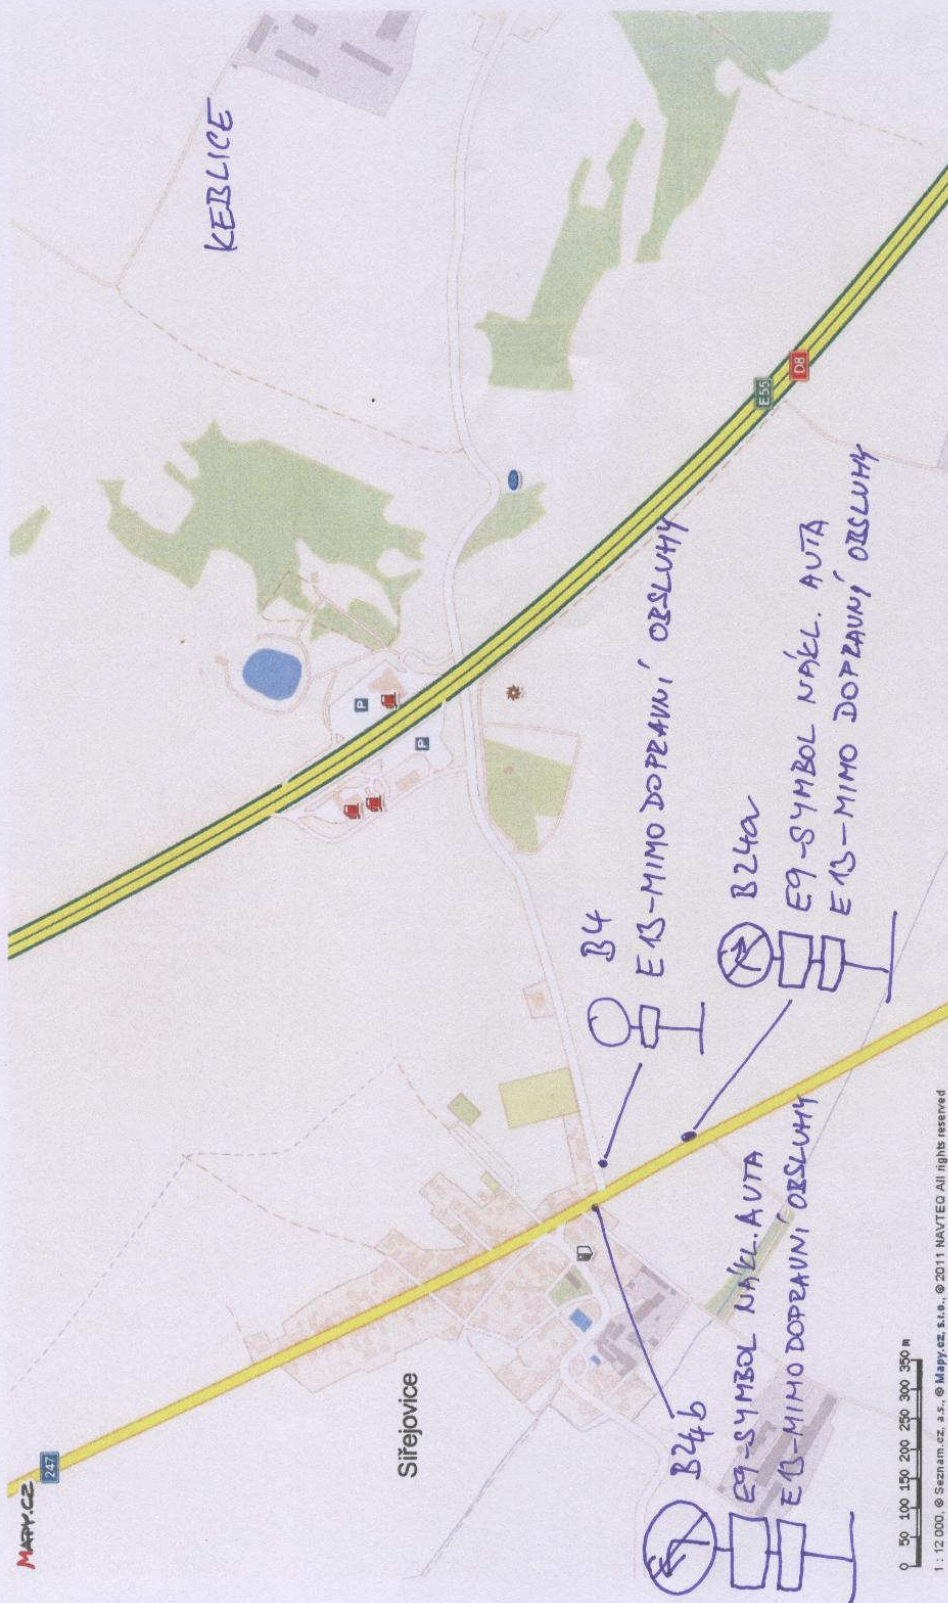 MAPY.CZ
247
Siřejovice
KEBLICE
E55
D8
P
P
B4
E13-MIMO DOPRAVNÍ OBSLUHY
B24a
E9-SYMBOL NÁKL. AUTA
E13-MIMO DOPRAVNÍ OBSLUHY
B24b
E9-SYMBOL NÁKL. AUTA
E13-MIMO DOPRAVNÍ OBSLUHY
0 50 100 150 200 250 300 350 m
1 : 12 000, © Seznam.cz, a.s., © Mapy.cz, s.r.o., © 2011 NAVTEQ All rights reserved